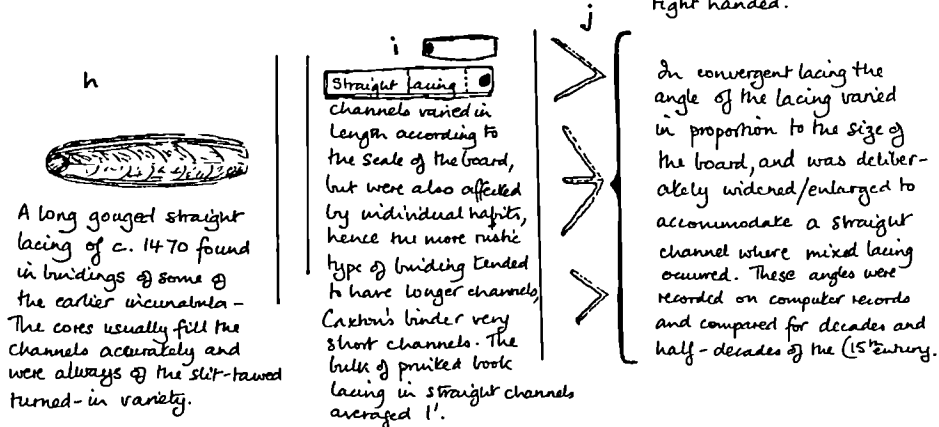 right handed.
h
A long gouged straight
lacing of c. 1470 found
in bindings of some of
the earlier incunabula –
The cores usually fill the
channels accurately and
were always of the slit-tawed
turned-in variety.
i
Straight lacing
channels varied in
length according to
the scale of the board,
but were also affected
by individual habits,
hence the more rustic
type of binding tended
to have longer channels,
Caxton's binder very
short channels. The
bulk of printed book
lacing in straight channels
averaged 1'.
j
In convergent lacing the
angle of the lacing varied
in proportion to the size of
the board, and was deliber-
ately widened/enlarged to
accommodate a straight
channel where mixed lacing
occurred. These angles were
recorded on computer records
and compared for decades and
half-decades of the (15th century.